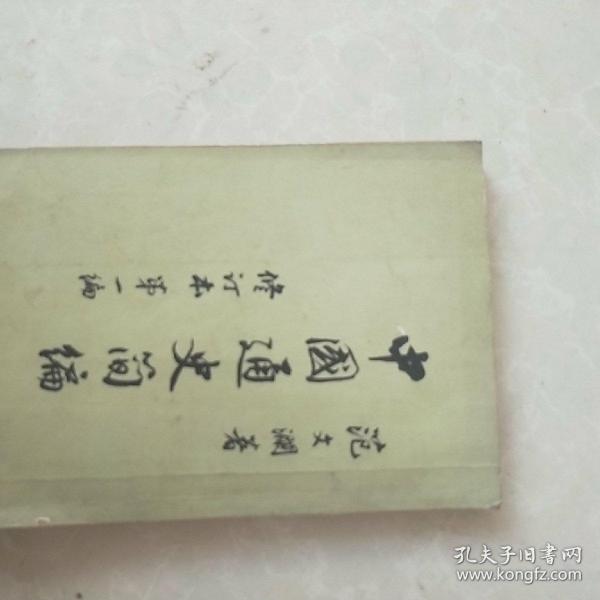 修订本第一编
中國通史简編
范文澜著
孔夫子旧書网
www.kongfz.com